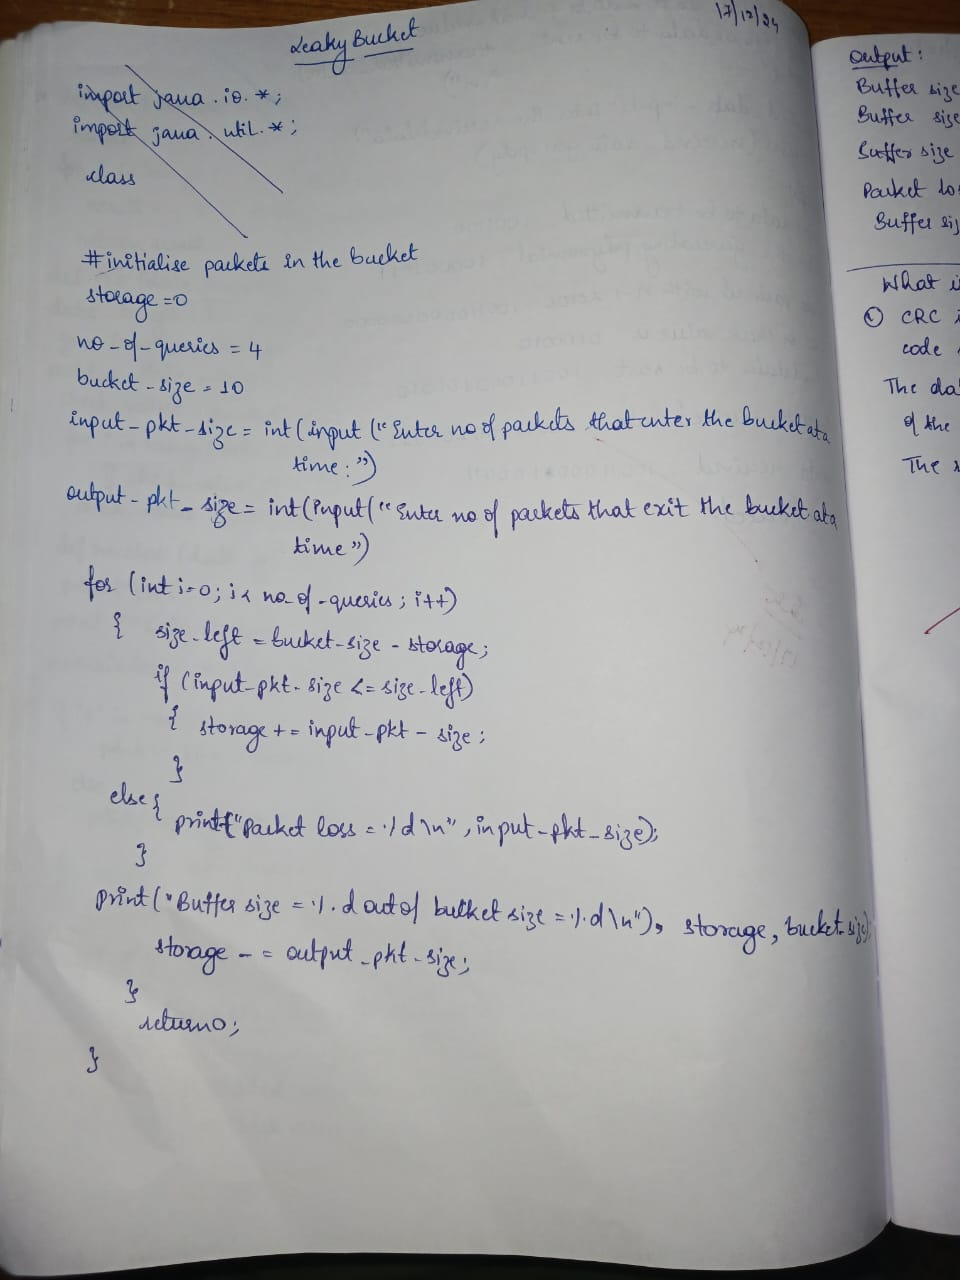 17/12/24
Leaky Bucket
import java.io.*;
import java.util.*;
class
#initialise packets in the bucket
storage=0
no-of-queries = 4
bucket-size = 10
input-pkt-size = int(input("Enter no of packets that enter the bucket at a
time:")
output-pkt-size = int(input("Enter no of packets that exit the bucket at a
time")
for (int i=0; i< no-of-queries; i++)
{ size-left = bucket-size - storage;
if (input-pkt-size <= size-left)
{ storage += input-pkt-size;
}
else{
printf("Packet loss = %d\n", input-pkt-size);
}
print("Buffer size = %d out of bucket size = %d\n"), storage, bucket-size);
storage -= output-pkt-size;
}
return 0;
}
Output:
Buffer size
Buffer size
Buffer size
Packet
Buffer
What
① CRC
code
The
of the
The